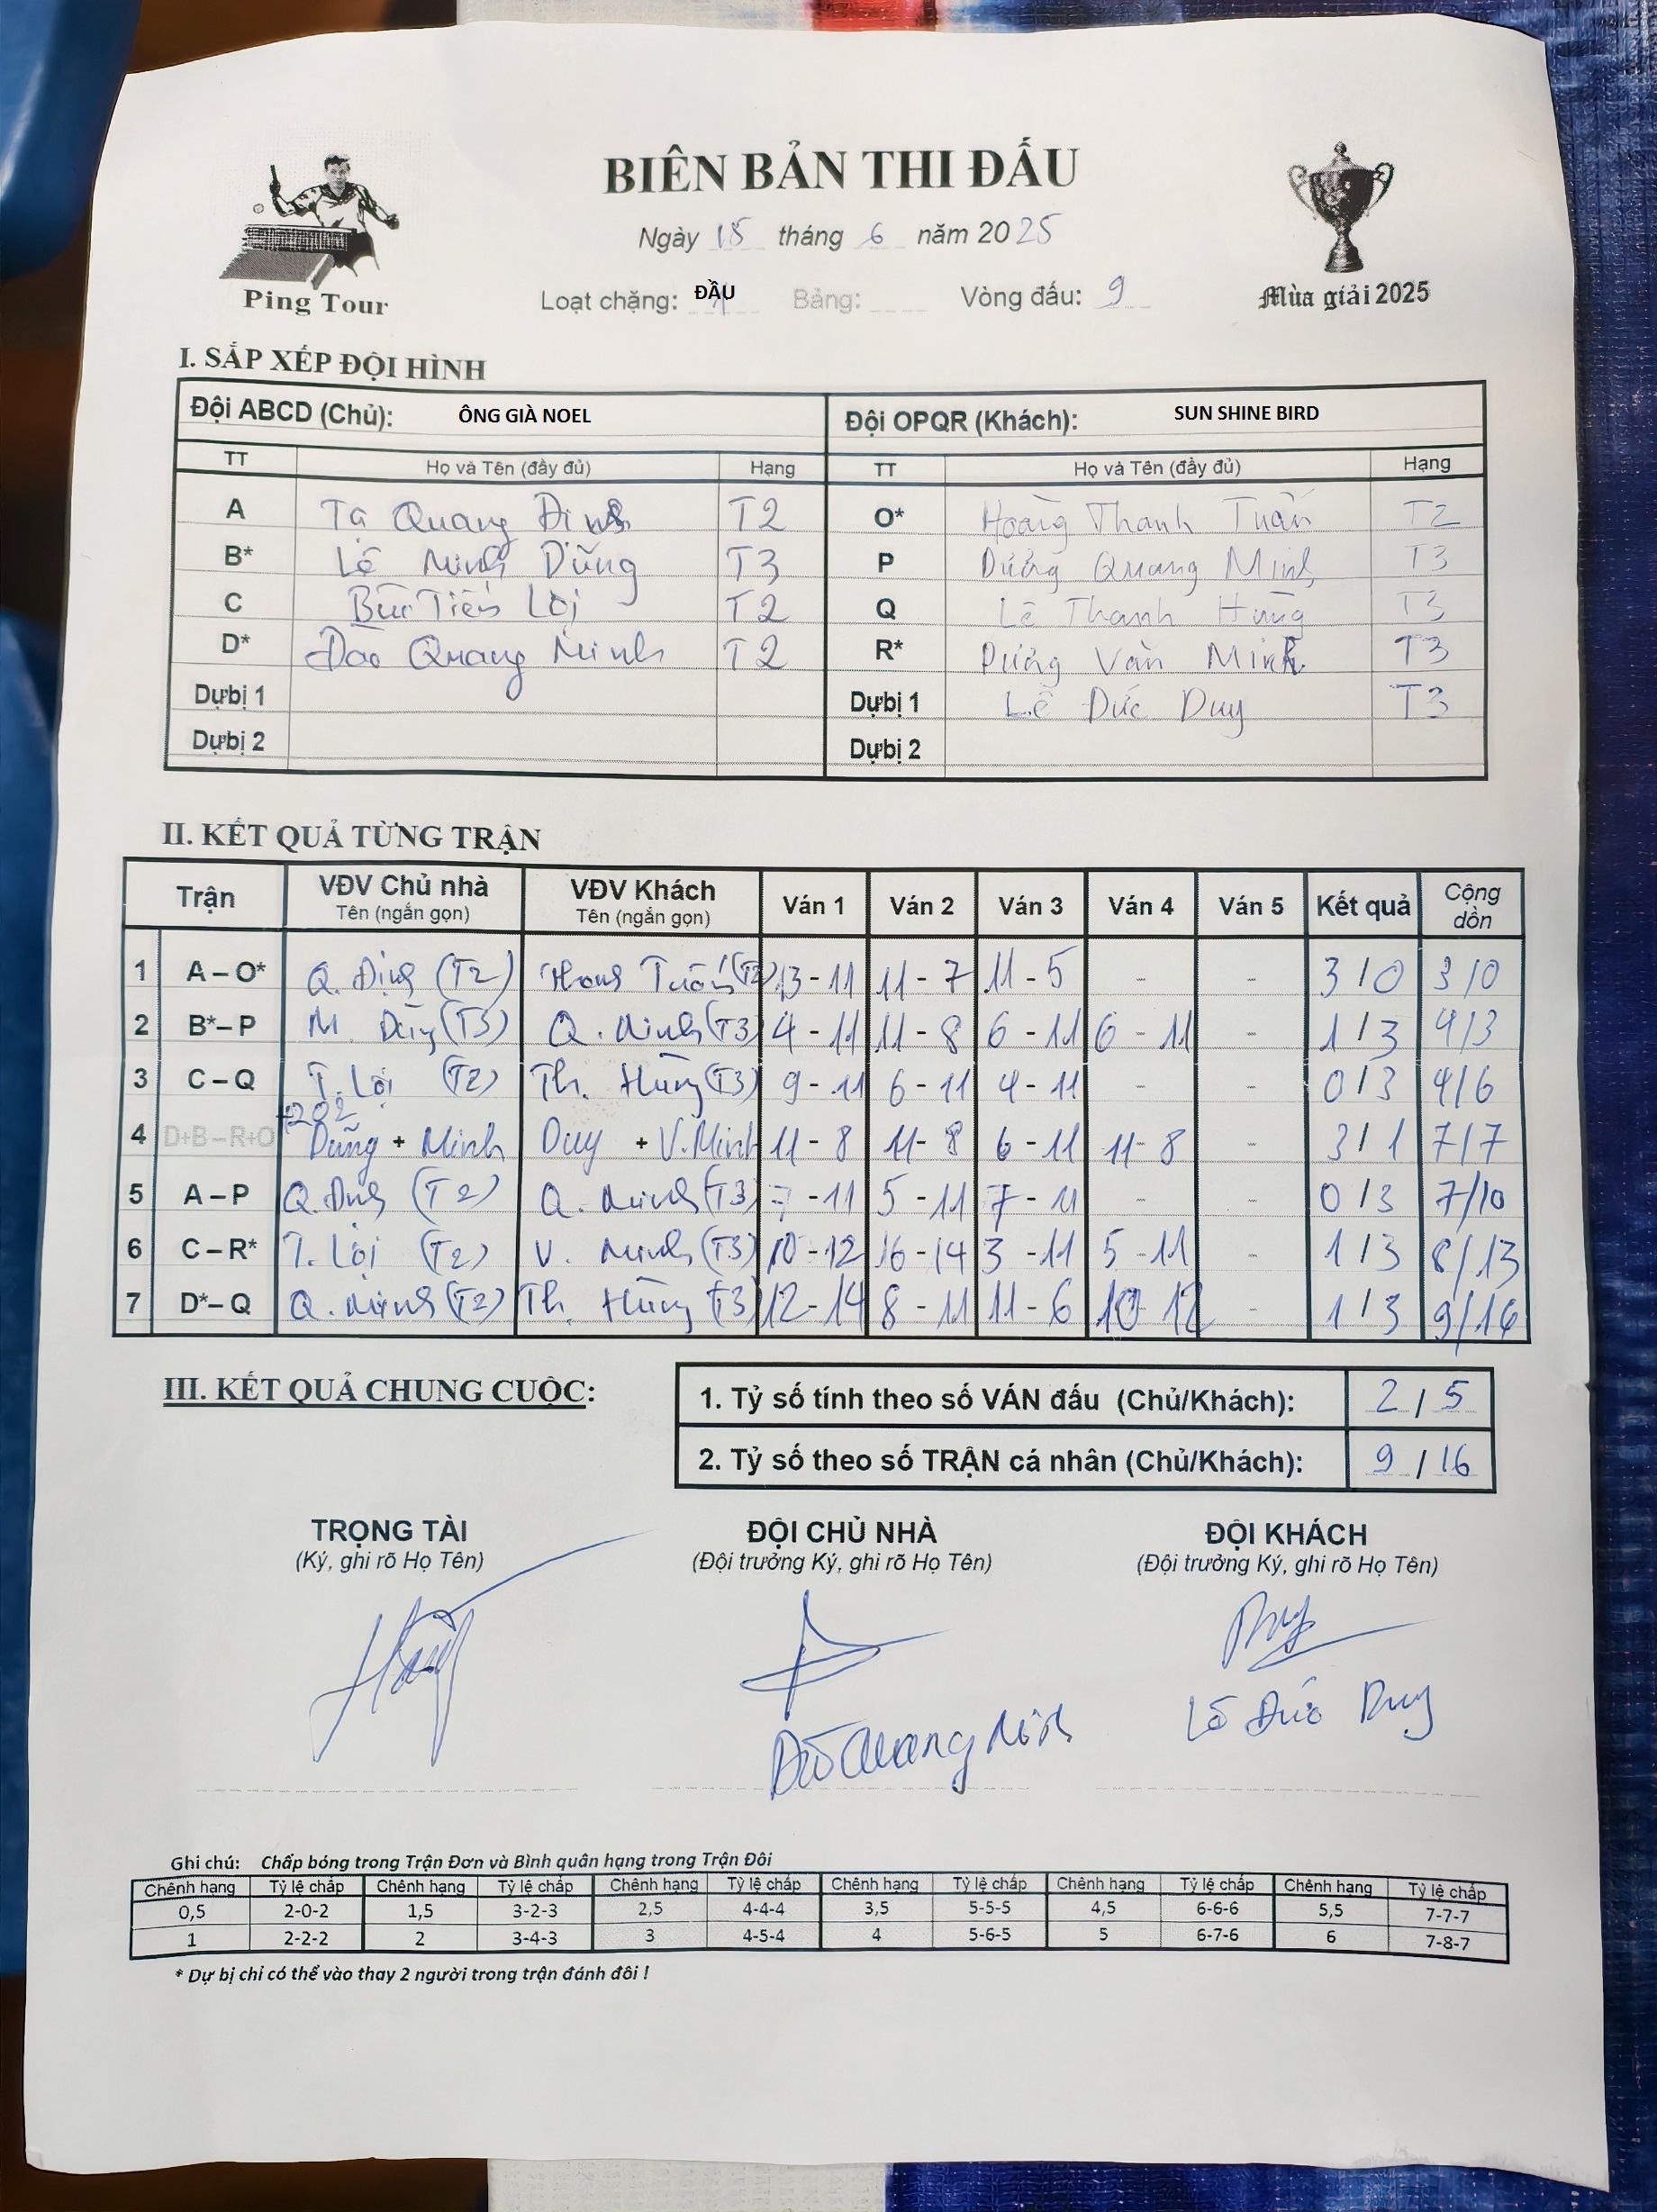 BIÊN BẢN THI ĐẤU
Ngày 15 tháng 6 năm 2025
Ping Tour
Loạt chặng: ĐẦU Bảng: Vòng đấu: 9
Mùa giải 2025
I. SẮP XẾP ĐỘI HÌNH
Đội ABCD (Chủ): ÔNG GIÀ NOEL Đội OPQR (Khách): SUN SHINE BIRD
TT Họ và Tên (đầy đủ) Hạng TT Họ và Tên (đầy đủ) Hạng
A Tạ Quang Định T2 O* Hoàng Thanh Tuấn T2
B* Lê Minh Dũng T3 P Dương Quang Minh T3
C Bùi Tiến Lợi T2 Q Lê Thanh Hùng T3
D* Đào Quang Minh T2 R* Dương Văn Minh T3
Dự bị 1 Dự bị 1 Lê Đức Duy T3
Dự bị 2 Dự bị 2
II. KẾT QUẢ TỪNG TRẬN
Trận VĐV Chủ nhà Tên (ngắn gọn) VĐV Khách Tên (ngắn gọn) Ván 1 Ván 2 Ván 3 Ván 4 Ván 5 Kết quả Cộng dồn
1 A – O* Q. Định (T2) Thanh Tuấn (T2) 13 - 11 11 - 7 11 - 5 - - 3 / 0 3/0
2 B* – P M. Dũng (T3) Q. Minh (T3) 4 - 11 11 - 8 6 - 11 6 - 11 - 1 / 3 4/3
3 C – Q T. Lợi (T2) Th. Hùng (T3) 9 - 11 6 - 11 4 - 11 - - 0 / 3 4/6
+202
4 D+B – R+O Dũng + Minh Duy + V. Minh 11 - 8 11 - 8 6 - 11 11 - 8 - 3 / 1 7/7
5 A – P Q. Định (T2) Q. Minh (T3) 7 - 11 5 - 11 7 - 11 - - 0 / 3 7/10
6 C – R* T. Lợi (T2) V. Minh (T3) 10 - 12 16 - 14 3 - 11 5 - 11 - 1 / 3 8/13
7 D* – Q Q. Minh (T2) Th. Hùng (T3) 12 - 14 8 - 11 11 - 6 10 - 12 - 1 / 3 9/16
III. KẾT QUẢ CHUNG CUỘC:
1. Tỷ số tính theo số VÁN đấu (Chủ/Khách): 2 / 5
2. Tỷ số theo số TRẬN cá nhân (Chủ/Khách): 9 / 16
TRỌNG TÀI ĐỘI CHỦ NHÀ ĐỘI KHÁCH
(Ký, ghi rõ Họ Tên) (Đội trưởng Ký, ghi rõ Họ Tên) (Đội trưởng Ký, ghi rõ Họ Tên)
Duy
Đào Quang Minh Lê Đức Duy
Ghi chú: Chấp bóng trong Trận Đơn và Bình quân hạng trong Trận Đôi
Chênh hạng Tỷ lệ chấp Chênh hạng Tỷ lệ chấp Chênh hạng Tỷ lệ chấp Chênh hạng Tỷ lệ chấp Chênh hạng Tỷ lệ chấp Chênh hạng Tỷ lệ chấp
0,5 2-0-2 1,5 3-2-3 2,5 4-4-4 3,5 5-5-5 4,5 6-6-6 5,5 7-7-7
1 2-2-2 2 3-4-3 3 4-5-4 4 5-6-5 5 6-7-6 6 7-8-7
* Dự bị chỉ có thể vào thay 2 người trong trận đánh đôi !